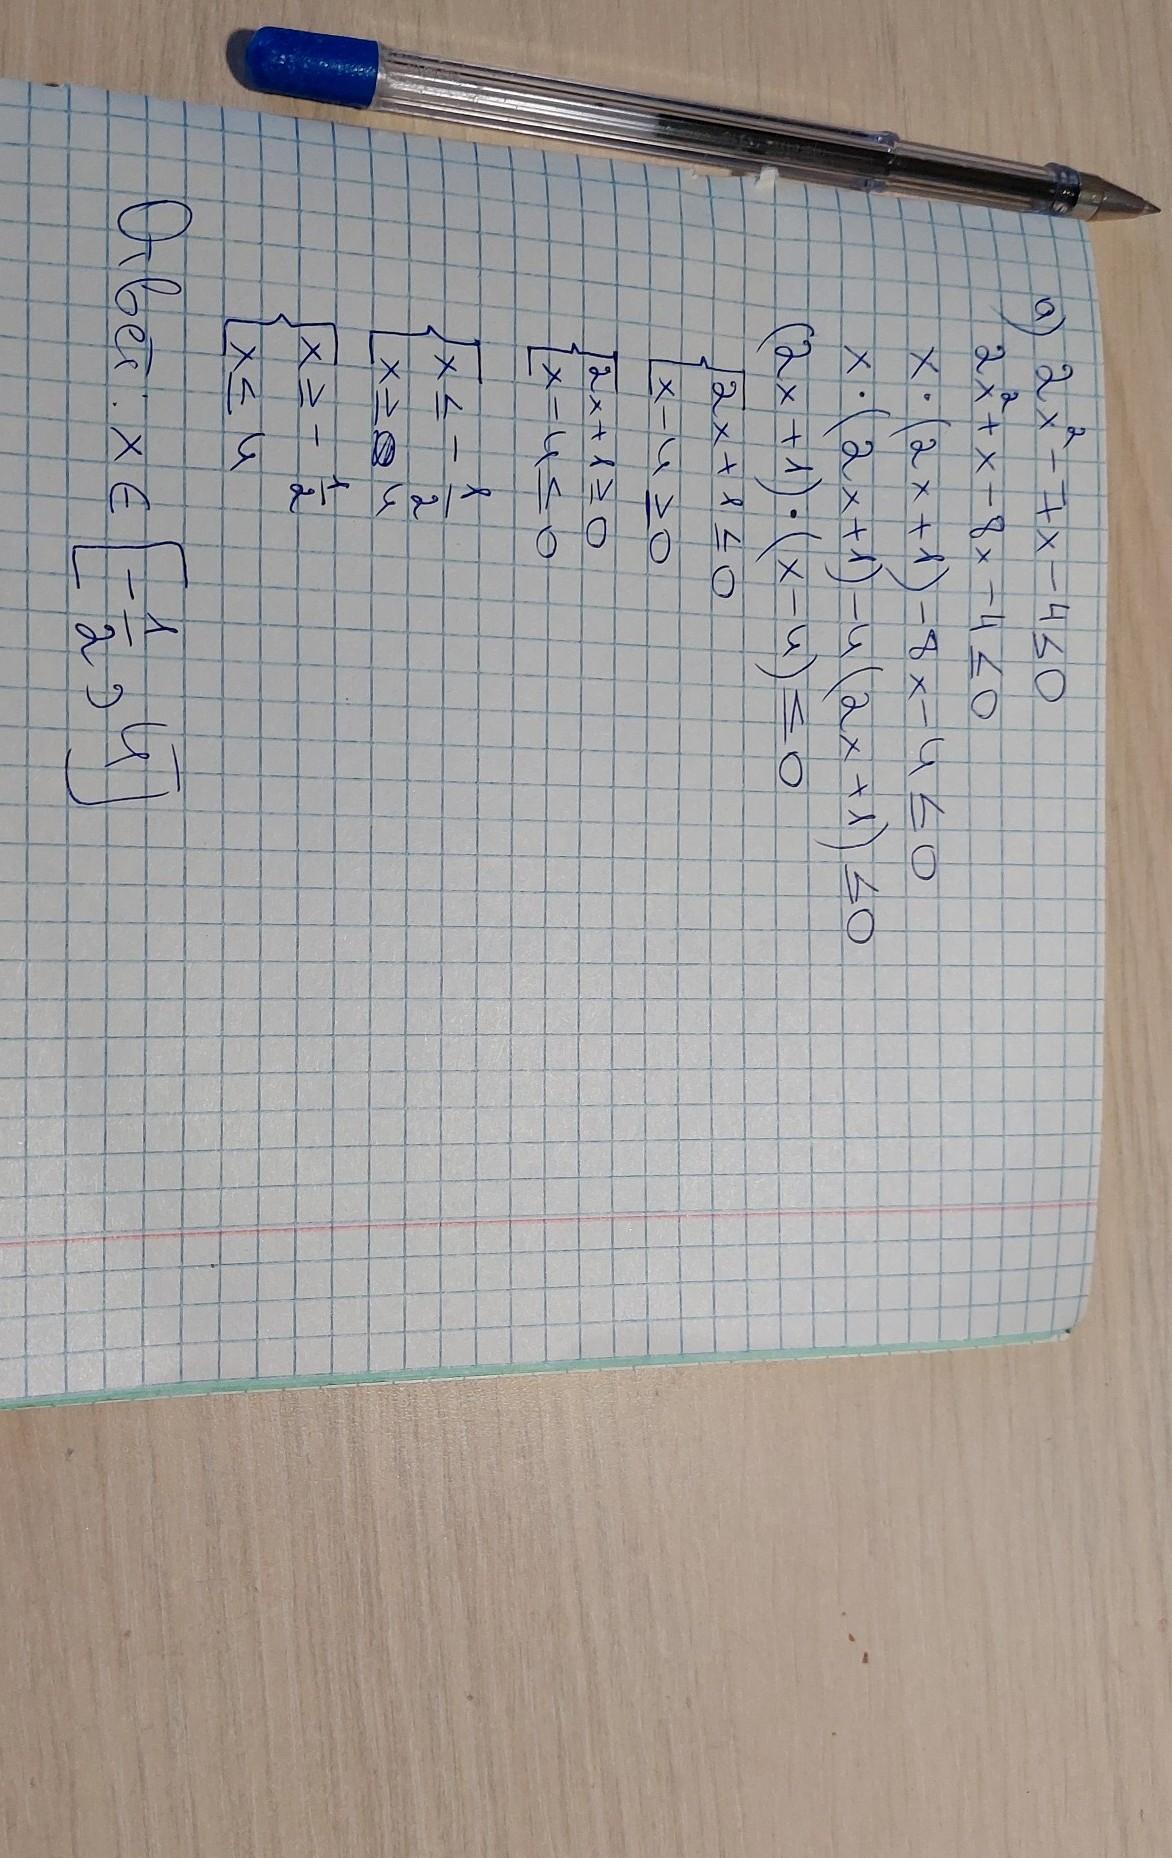 а) 2x² - 7x - 4 ≤ 0
2x² + x - 8x - 4 ≤ 0
x · (2x + 1) - 8x - 4 ≤ 0
x · (2x + 1) - 4(2x + 1) ≤ 0
(2x + 1) · (x - 4) ≤ 0
{2x + 1 ≤ 0
x - 4 ≥ 0
{2x + 1 ≥ 0
x - 4 ≤ 0
{x ≤ - 1/2
x ≥ 4
{x ≥ - 1/2
x ≤ 4
Ответ: x ∈ [-1/2; 4]